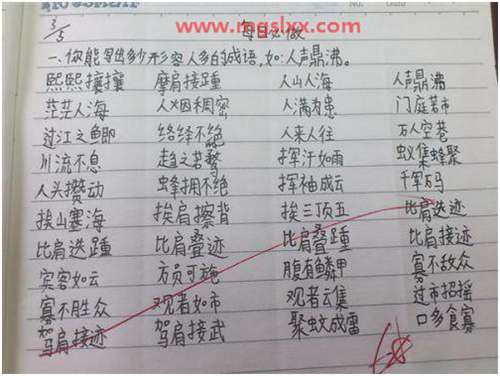 www.mgslxx.com
3/5 每日必做
一、你能写出多少形容人多的成语,如:人声鼎沸。
熙熙攘攘 摩肩接踵 人山人海 人声鼎沸
茫茫人海 人烟稠密 人满为患 门庭若市
过江之鲫 络绎不绝 人来人往 万人空巷
川流不息 趋之若鹜 挥汗如雨 蚁集蜂聚
人头攒动 蜂拥不绝 挥袖成云 千军万马
挨山塞海 挨肩擦背 挨三顶五 比肩迭迹
比肩迭踵 比肩叠迹 比肩叠踵 比肩接迹
宾客如云 方员可施 腹有鳞甲 寡不敌众
寡不胜众 观者如市 观者云集 过市招摇
驾肩接迹 驾肩接武 聚蚊成雷 口多食寡